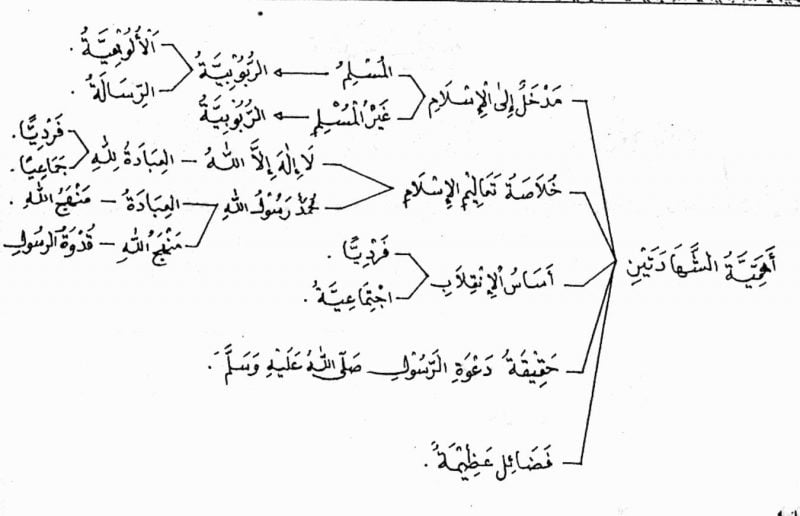 أَهَمِّيَّةُ الشَّهَادَتَيْنِ
مَدْخَلٌ إِلَى الْإِسْلَامِ
الْمُسْلِمُ ← الرُّبُوْبِيَّةُ
اَلْأُلُوْهِيَّةُ .
الرِّسَالَةُ .
غَيْرُ الْمُسْلِمِ ← الرُّبُوْبِيَّةُ
خُلَاصَةُ تَعَالِيْمِ الْإِسْلَامِ
لَا إِلٰهَ إِلَّا اللهُ – العِبَادَةُ لِلّٰهِ
فَرْدِيًّا .
جَمَاعِيًّا .
مُحَمَّدٌ رَسُوْلُ اللهِ
العِبَادَةُ – مَنْهَجُ اللهِ .
مَنْهَجُ اللهِ – قُدْوَةُ الرَّسُوْلِ
أَسَاسُ الْإِنْقِلَابِ
فَرْدِيًّا .
اجْتِمَاعِيَّةُ .
حَقِيْقَةُ دَعْوَةِ الرَّسُوْلِ صَلَّى اللهُ عَلَيْهِ وَسَلَّمَ .
فَضَائِل عَظِيْمَةُ .